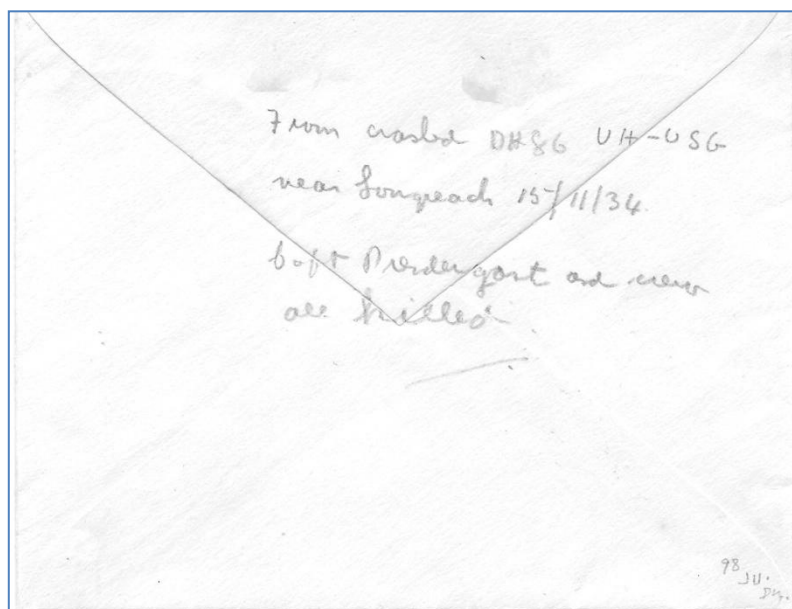 From crashed DH86 VH-USG
near Longreach 15/11/34.
Capt Prendergast and crew
all killed
98